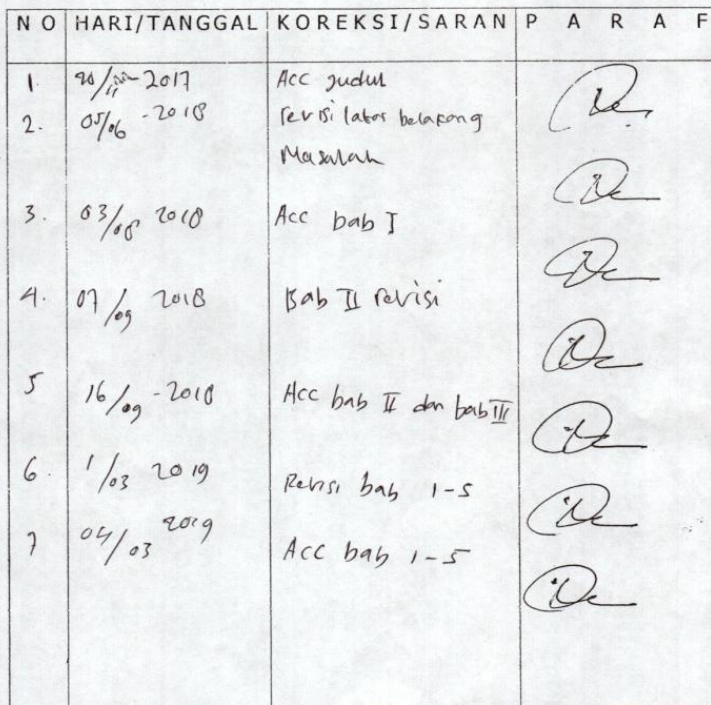 NO HARI/TANGGAL KOREKSI/SARAN PARAF
1. 20/11 2017 Acc judul
2. 05/06 - 2018 revisi latar belakang
Masalah
3. 03/08 2018 Acc bab I
4. 07/09 2018 Bab II revisi
5 16/09 - 2018 Acc bab II dan bab III
6. 1/03 2019 Revisi bab 1-5
7 04/03 2019 Acc bab 1-5